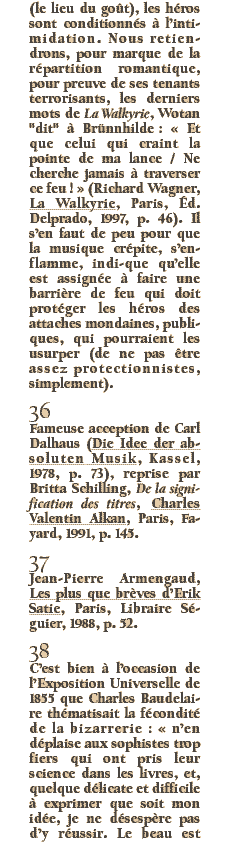 (le lieu du goût), les héros
sont conditionnés à l'inti-
midation. Nous retien-
drons, pour marque de la
répartition romantique,
pour preuve de ses tenants
terrorisants, les derniers
mots de La Walkyrie, Wotan
"dit" à Brünnhilde : « Et
que celui qui craint la
pointe de ma lance / Ne
cherche jamais à traverser
ce feu ! » (Richard Wagner,
La Walkyrie, Paris, Éd.
Delprado, 1997, p. 46). Il
s'en faut de peu pour que
la musique crépite, s'en-
flamme, indi-que qu'elle
est assignée à faire une
barrière de feu qui doit
protéger les héros des
attaches mondaines, publi-
ques, qui pourraient les
usurper (de ne pas être
assez protectionnistes,
simplement).
36
Fameuse acception de Carl
Dalhaus (Die Idee der ab-
soluten Musik, Kassel,
1978, p. 73), reprise par
Britta Schilling, De la signi-
fication des titres, Charles
Valentin Alkan, Paris, Fa-
yard, 1991, p. 145.
37
Jean-Pierre Armengaud,
Les plus que brèves d'Erik
Satie, Paris, Libraire Sé-
guier, 1988, p. 52.
38
C'est bien à l'occasion de
l'Exposition Universelle de
1855 que Charles Baudelai-
re thématisait la fécondité
de la bizarrerie : « n'en
déplaise aux sophistes trop
fiers qui ont pris leur
science dans les livres, et,
quelque délicate et difficile
à exprimer que soit mon
idée, je ne désespère pas
d'y réussir. Le beau est